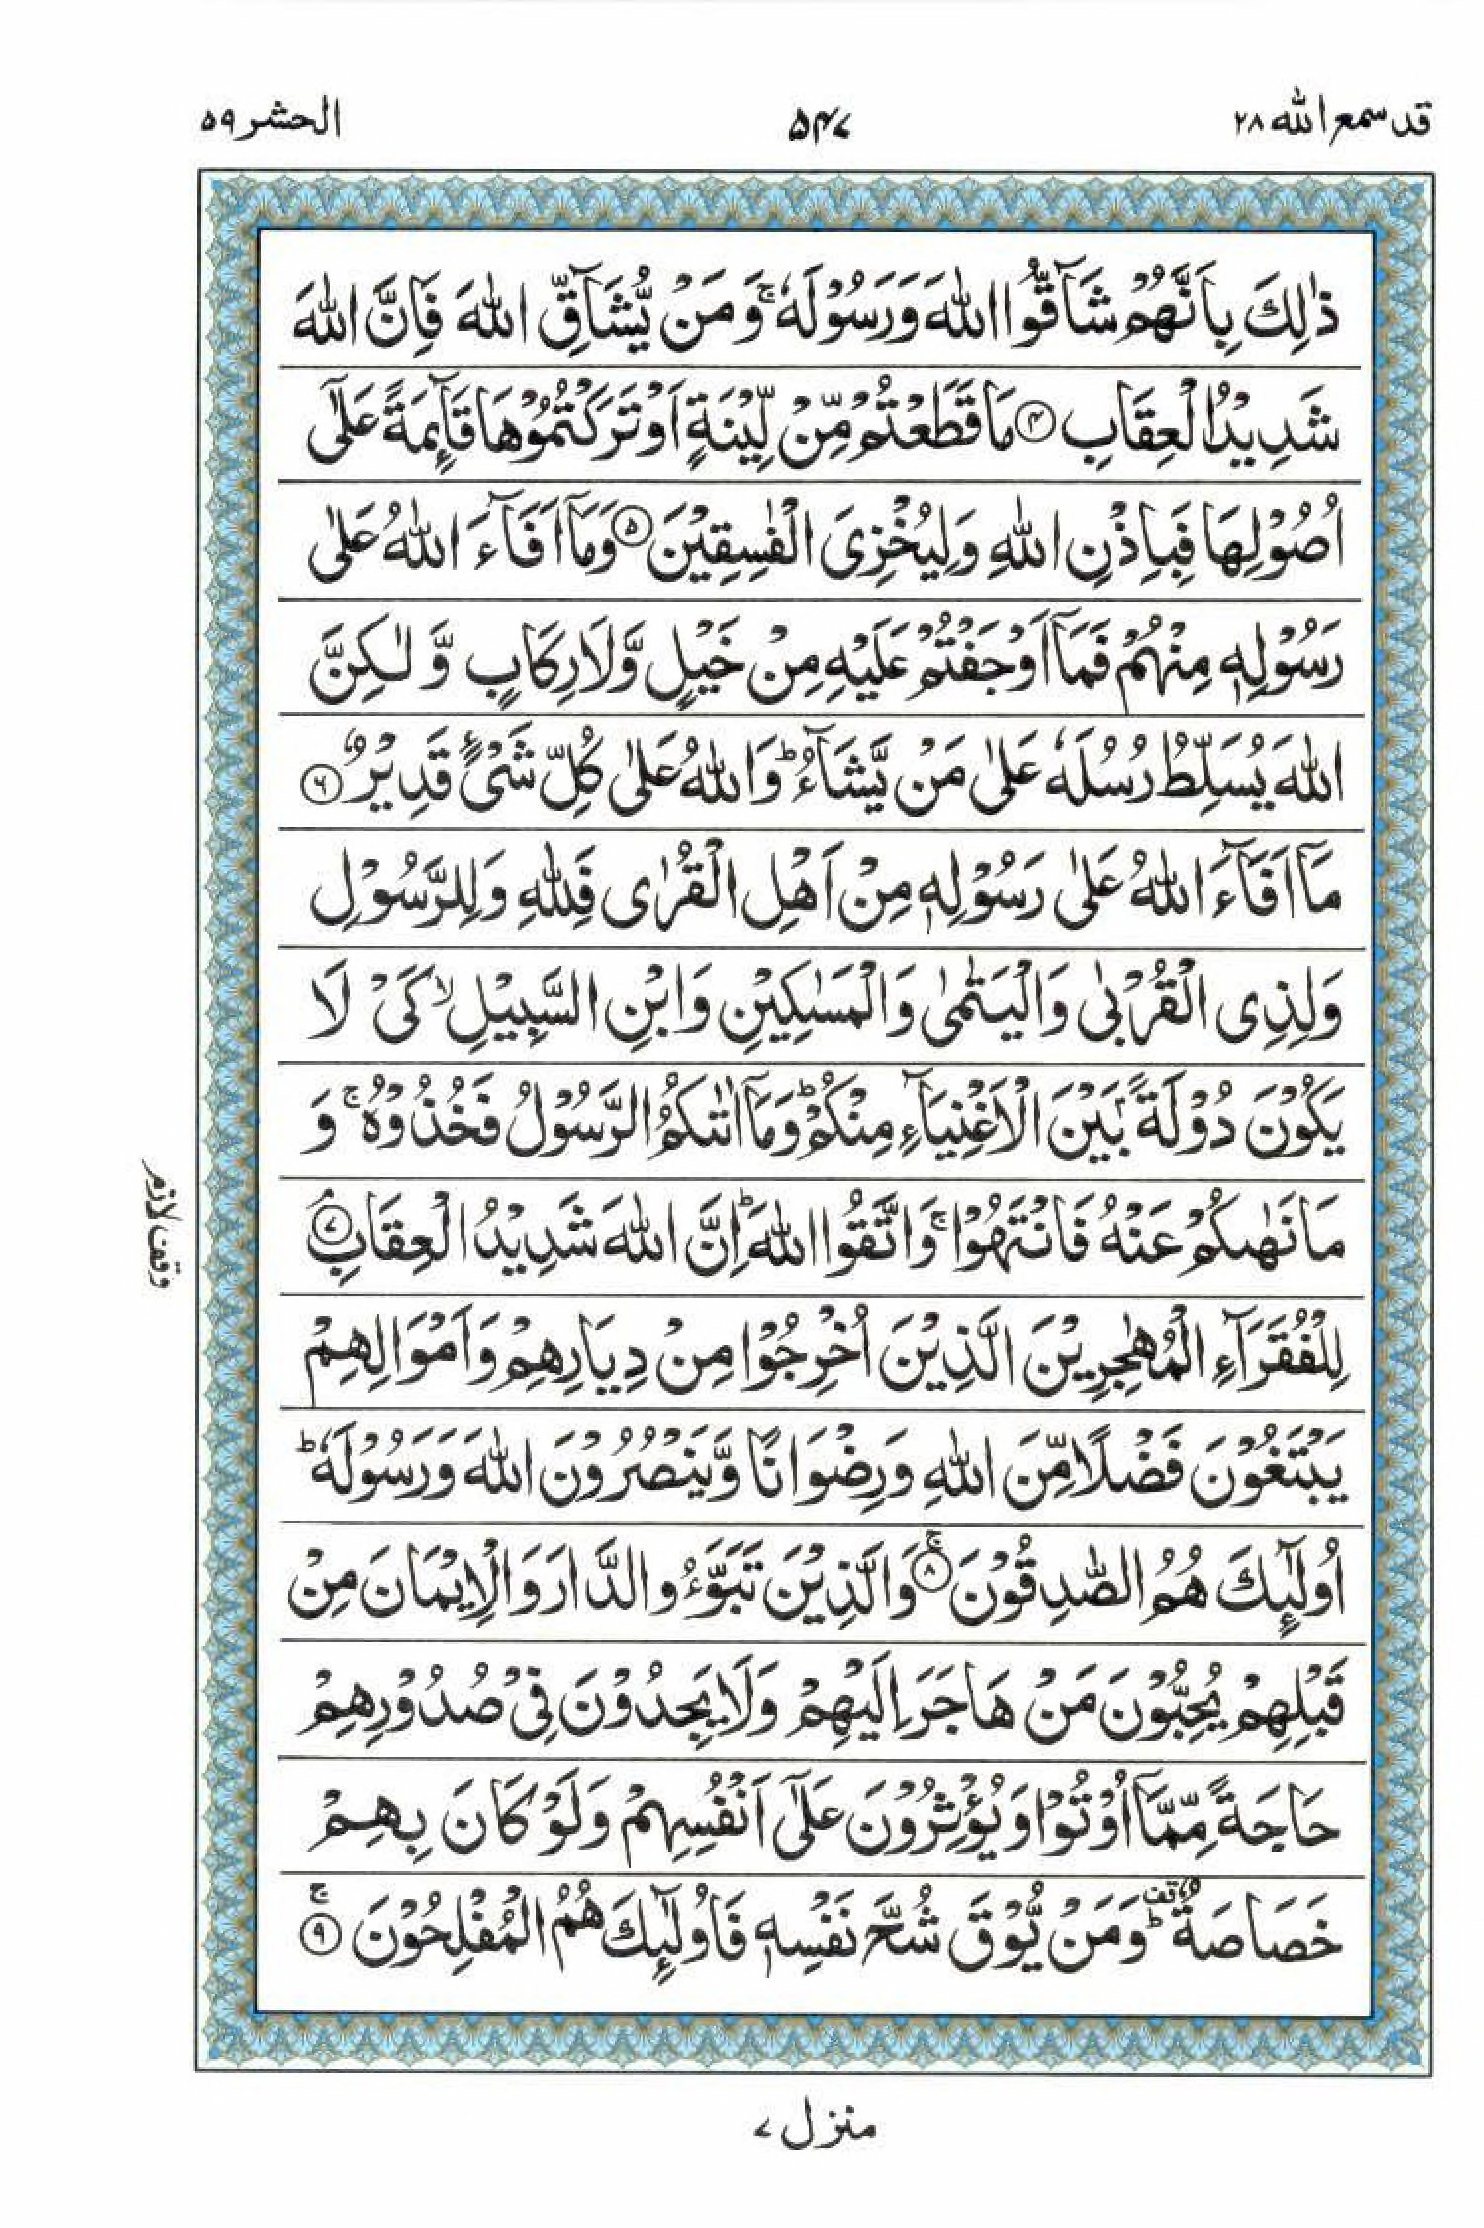 قد سمع الله ۲۸
۵۴۷
الحشر ۵۹
ذٰلِكَ بِاَنَّهُمْ شَآقُّوا اللّٰهَ وَرَسُوْلَهٗ ۚ وَمَنْ يُّشَآقِّ اللّٰهَ فَاِنَّ اللّٰهَ
شَدِيْدُ الْعِقَابِ ۴ مَا قَطَعْتُمْ مِّنْ لِّيْنَةٍ اَوْ تَرَكْتُمُوْهَا قَآئِمَةً عَلٰٓى
اُصُوْلِهَا فَبِاِذْنِ اللّٰهِ وَلِيُخْزِىَ الْفٰسِقِيْنَ ۵ وَمَآ اَفَآءَ اللّٰهُ عَلٰى
رَسُوْلِهٖ مِنْهُمْ فَمَآ اَوْجَفْتُمْ عَلَيْهِ مِنْ خَيْلٍ وَّلَا رِكَابٍ وَّلٰكِنَّ
اللّٰهَ يُسَلِّطُ رُسُلَهٗ عَلٰى مَنْ يَّشَآءُ ؕ وَاللّٰهُ عَلٰى كُلِّ شَىْءٍ قَدِيْرٌ ۶
مَآ اَفَآءَ اللّٰهُ عَلٰى رَسُوْلِهٖ مِنْ اَهْلِ الْقُرٰى فَلِلّٰهِ وَلِلرَّسُوْلِ
وَلِذِى الْقُرْبٰى وَالْيَتٰمٰى وَالْمَسٰكِيْنِ وَابْنِ السَّبِيْلِ ۙ كَىْ لَا
يَكُوْنَ دُوْلَةًۢ بَيْنَ الْاَغْنِيَآءِ مِنْكُمْ ؕ وَمَآ اٰتٰىكُمُ الرَّسُوْلُ فَخُذُوْهُ ۚ وَ
مَا نَهٰىكُمْ عَنْهُ فَانْتَهُوْا ۚ وَاتَّقُوا اللّٰهَ ؕ اِنَّ اللّٰهَ شَدِيْدُ الْعِقَابِ ۘ ۷
وقف لازم
لِلْفُقَرَآءِ الْمُهٰجِرِيْنَ الَّذِيْنَ اُخْرِجُوْا مِنْ دِيَارِهِمْ وَاَمْوَالِهِمْ
يَبْتَغُوْنَ فَضْلًا مِّنَ اللّٰهِ وَرِضْوَانًا وَّيَنْصُرُوْنَ اللّٰهَ وَرَسُوْلَهٗ ؕ
اُولٰٓئِكَ هُمُ الصّٰدِقُوْنَ ۚ ۸ وَالَّذِيْنَ تَبَوَّءُو الدَّارَ وَالْاِيْمَانَ مِنْ
قَبْلِهِمْ يُحِبُّوْنَ مَنْ هَاجَرَ اِلَيْهِمْ وَلَا يَجِدُوْنَ فِىْ صُدُوْرِهِمْ
حَاجَةً مِّمَّآ اُوْتُوْا وَيُؤْثِرُوْنَ عَلٰٓى اَنْفُسِهِمْ وَلَوْ كَانَ بِهِمْ
خَصَاصَةٌ ؕ قف وَمَنْ يُّوْقَ شُحَّ نَفْسِهٖ فَاُولٰٓئِكَ هُمُ الْمُفْلِحُوْنَ ۚ ۹
منزل ۷